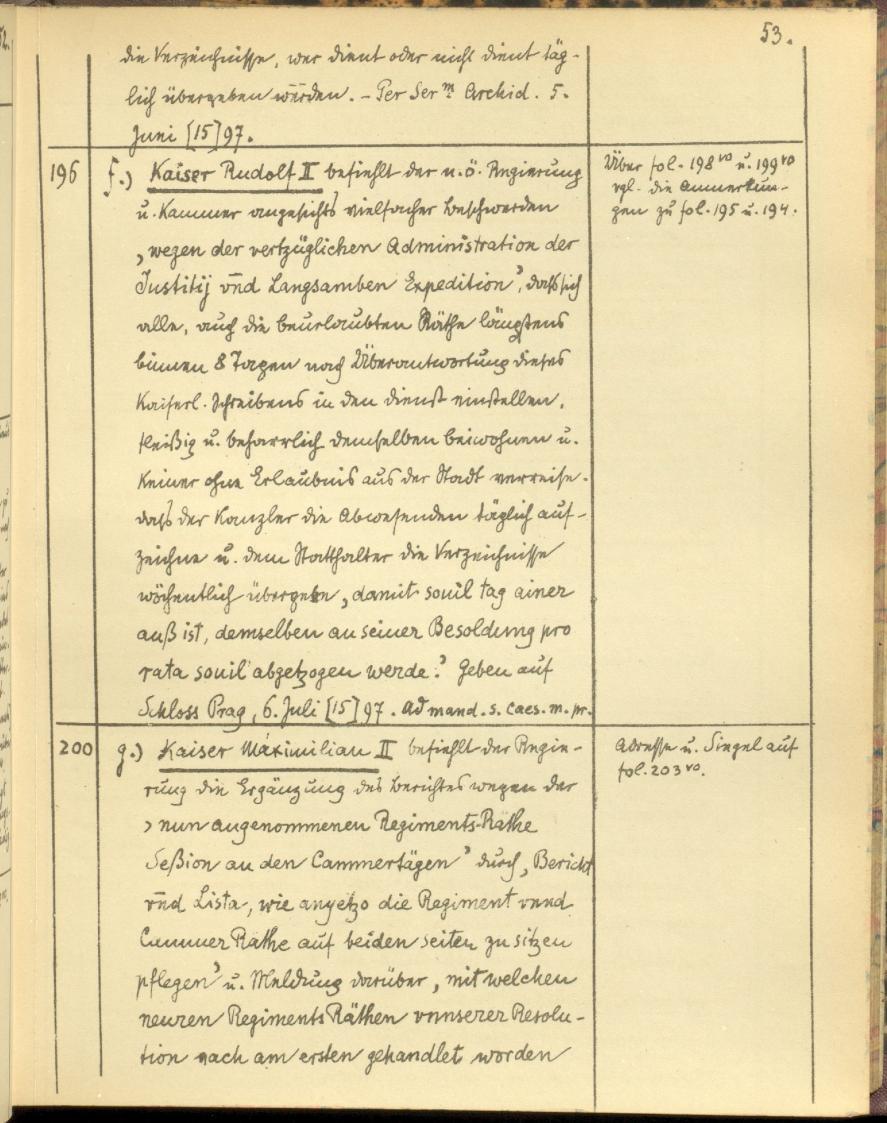 53.
die Verzeichnisse, wer dient oder nicht dient täg-
lich übergeben würden. - Per Ser.m Archid. 5.
Juni [15]97.
196 f.) Kaiser Rudolf II befiehlt der n.ö. Regierung
u. Kammer angesichts vielfacher Beschwerden
„wegen der vertzüglichen Administration der
Justitij vnd Langsamben Expedition", daß sich
alle, auch die beurlaubten Räthe längstens
binnen 8 Tagen nach Überantwortung dieses
Kaiserl. Schreibens in den Dienst einstellen,
fleißig u. beharrlich demselben beiwohnen u.
Keiner ohne Erlaubnis aus der Stadt verreise.
daß der Kanzler die Abwesenden täglich auf-
zeichne u. dem Statthalter die Verzeichnisse
wöchentlich übergebe, „damit souil tag ainer
auß ist, demselben an seiner Besoldung pro
rata souil abgetzogen werde." Geben auf
Schloss Prag, 6. Juli [15]97. Ad mand. s. caes. m. pr.
Über fol. 198vo u. 199vo
vgl. die Anmerkun-
gen zu fol. 195 u. 194.
200 g.) Kaiser Maximilian II befiehlt der Regie-
rung die Ergänzung des Berichtes wegen der
„nun angenommenen Regiments-Rathe
Seßion an den Cammertägen" durch „Bericht
vnd Lista, wie anyetzo die Regiment vnnd
Cammer Rathe auf beiden seiten zu sitzen
pflegen" u. Meldung darüber, „mit welchen
neuren Regiments Räthen vnnserer Resolu-
tion nach am ersten gehandlet worden
Adresse u. Siegel auf
fol. 203vo.